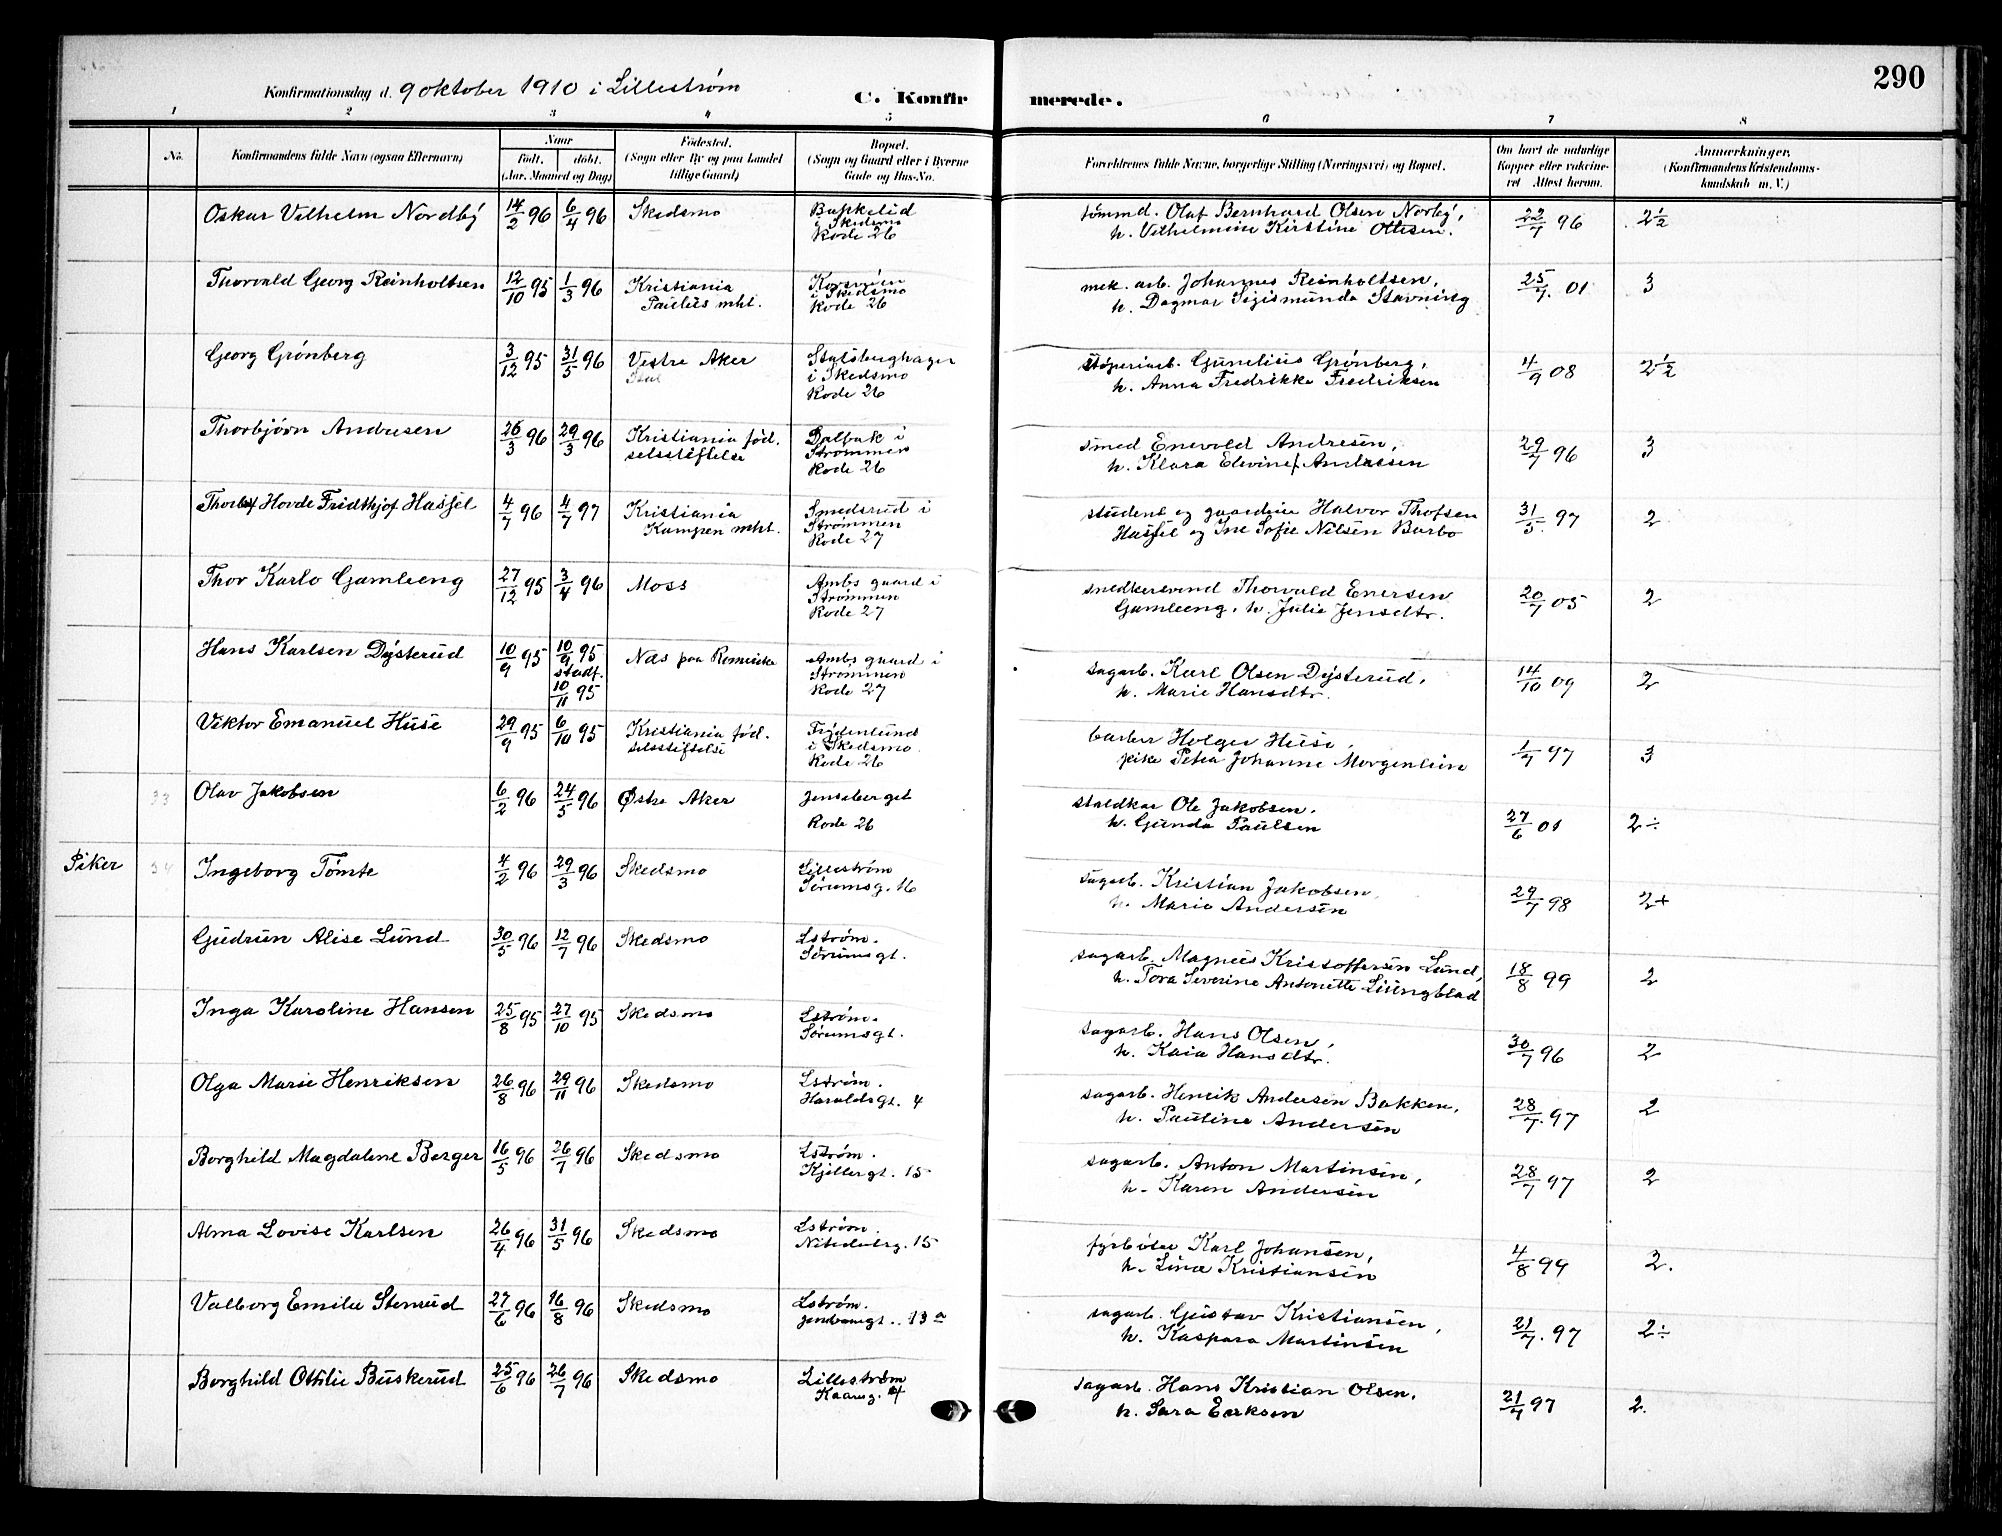 290
Konfirmationsdag d. 9 oktober 1910 i Lillestrøm
C. Konfirmerede.
1 2 3 4 5 6 7 8
No.
Konfirmandens fulde Navn (ogsaa Efternavn)
Naar
født. døbt.
(Aar, Maaned og Dag)
Fødested.
(Sogn eller By og paa Landet
tillige Gaard)
Bopæl.
(Sogn og Gaard eller i Byerne
Gade og Hus-No.
Forældrenes fulde Navne, borgerlige Stilling (Næringsvei) og Bopæl.
Om havt de naturlige
Kopper eller vakcine-
ret Attest herom.
Anmærkninger,
(Konfirmandens Kristendoms-
kundskab m. V.)
Oskar Vilhelm Nordbý 14/2 96 6/4 96 Skedsmo
i Skedsmo
Rode 26
tømmd. Olaf Bernhard Olsen Norbý,
h. Vilhelmine Kirstine Ottesen. 22/7 96 2½
Thorvald Georg Reinholtsen 12/10 95 1/3 96 Kristiania
Paulus mht.
i Skedsmo
Rode 26
mek. arb. Johannes Reinholtsen,
h. Dagmar Sigismunda Stavning 25/7. 01 3
Georg Grønberg 3/12 95 31/5 96 Vestre Aker
Stalsberghagen
i Skedsmo
Rode 26
støperiarb. Gunelius Grønberg,
h. Anna Fredrikke Fredriksen 4/9 08 2½
Thorbjørn Andresen 26/3 96 29/3 96 Kristiania fød.
selsstiftelse
Dalbak i
Strømmen
Rode 26
smed Enevold Andresen,
h. Klara Elevine Andresen 29/7 96 3
Hovde Fridthjof Hasfel 4/7 96 4/7 97 Kristiania
Kampen mht.
Smedsrud i
Strømmen
Rode 27
student og gaardeier Halvor Thofsen
Hasfel og Ine Sofie Nilsen Barbo 31/5. 97 2
Thor Karlo Gamleeng 27/12 95 3/4 96 Moss
Ambs gaard i
Strømmen
Rode 27
snedkersvend Thorvald Enersen
Gamleeng, h. Julie Jensdtr. 20/7 05 2
Hans Karlsen Dýsterud 10/9 95 10/9 95
stadf.
10/11 95
Næs paa Romerike
Ambs gaard i
Strømmen
Rode 27
sagarb. Karl Olsen Dýsterud,
h. Marie Hansdtr. 14/10 09 2
Viktor Emanuel Huse 29/9 95 6/10 95 Kristiania fød.
selsstiftelse
Frýdenlund
i Skedsmo.
Rode 26
barber Holger Huse,
pike Petra Johanne Morgenlien 1/7 97 3
33 Olav Jakobsen 6/2 96 24/5 96 Østre Aker
Jensberget
Rode 26
staldkar Ole Jakobsen.
h. Gunda Paulsen 27/6 01 2÷
Piker 34 Ingeborg Tømte 4/2 96 29/3 96 Skedsmo
Lillestrøm
Sørumsg. 16
sagarb. Kristian Jakobsen,
h. Marie Andersen 29/7 98 2+
Gudrun Alise Lund 30/5 96 12/7 96 Skedsmo
Lstrøm.
Sørumsgt.
sagarb. Magnus Kristoffersen Lund,
h. Tora Severine Antonette Liungblad 18/8 99 2
Inga Karoline Hansen 25/8 95 27/10 95 Skedsmo
Lstrøm.
Sørumsgt.
sagarb. Hans Olsen,
h. Kaia Hansdtr. 30/7 96 2
Olga Marie Henriksen 26/8 96 29/11 96 Skedsmo
Lstrøm.
Haraldsgt. 4
sagarb. Henrik Andersen Bakken,
h. Pauline Andersen 28/7. 97 2
Borghild Magdalene Berger 16/5 96 26/7 96 Skedsmo
Lstrøm.
Kjellergt. 15
sagarb. Anton Martinsen,
h. Karen Andersen 28/7 97 2
Alma Lovise Karlsen 26/4 96 31/5 96 Skedsmo
Lstrøm.
Nitedalsg. 15
fýrbøter Karl Johansen,
h. Lina Kristiansen 4/8 99 2.
Valborg Emilie Stenrud 27/6 96 16/8 96 Skedsmo
Lstrøm.
Jernbanegt. 13 a
sagarb. Gustav Kristiansen,
h. Kaspara Martinsen 21/7. 97 2÷
Borghild Ottilie Buskerud 25/6 96 26/7 96 Skedsmo
Lillestrøm
sagarb. Hans Kristian Olsen.
h. Sara Eriksen 21/7 97 2.